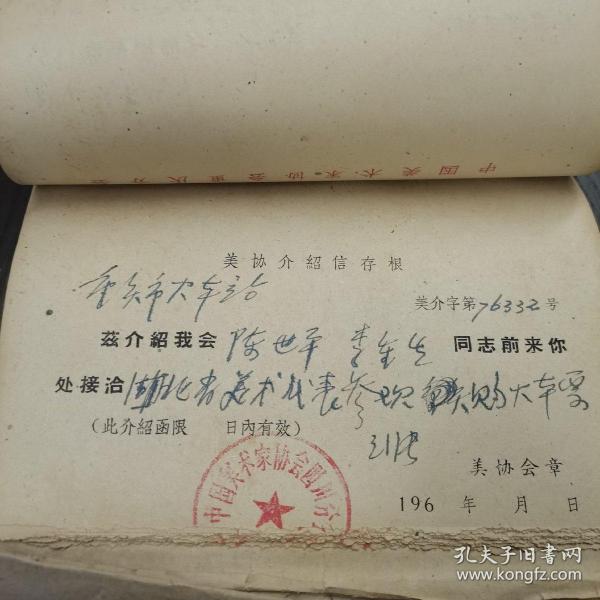 中国美术家协会重庆分会
美协介紹信存根
重庆市火车站
美介字第76332号
茲介紹我会 陈世平 李金生 同志前来你
处接洽 湖北省美术代表参观 购火车票
(此介紹函限 日內有效)
三张
美协会章
中国美术家协会四川分
196 年 月 日
孔夫子旧书网
www.kongfz.com